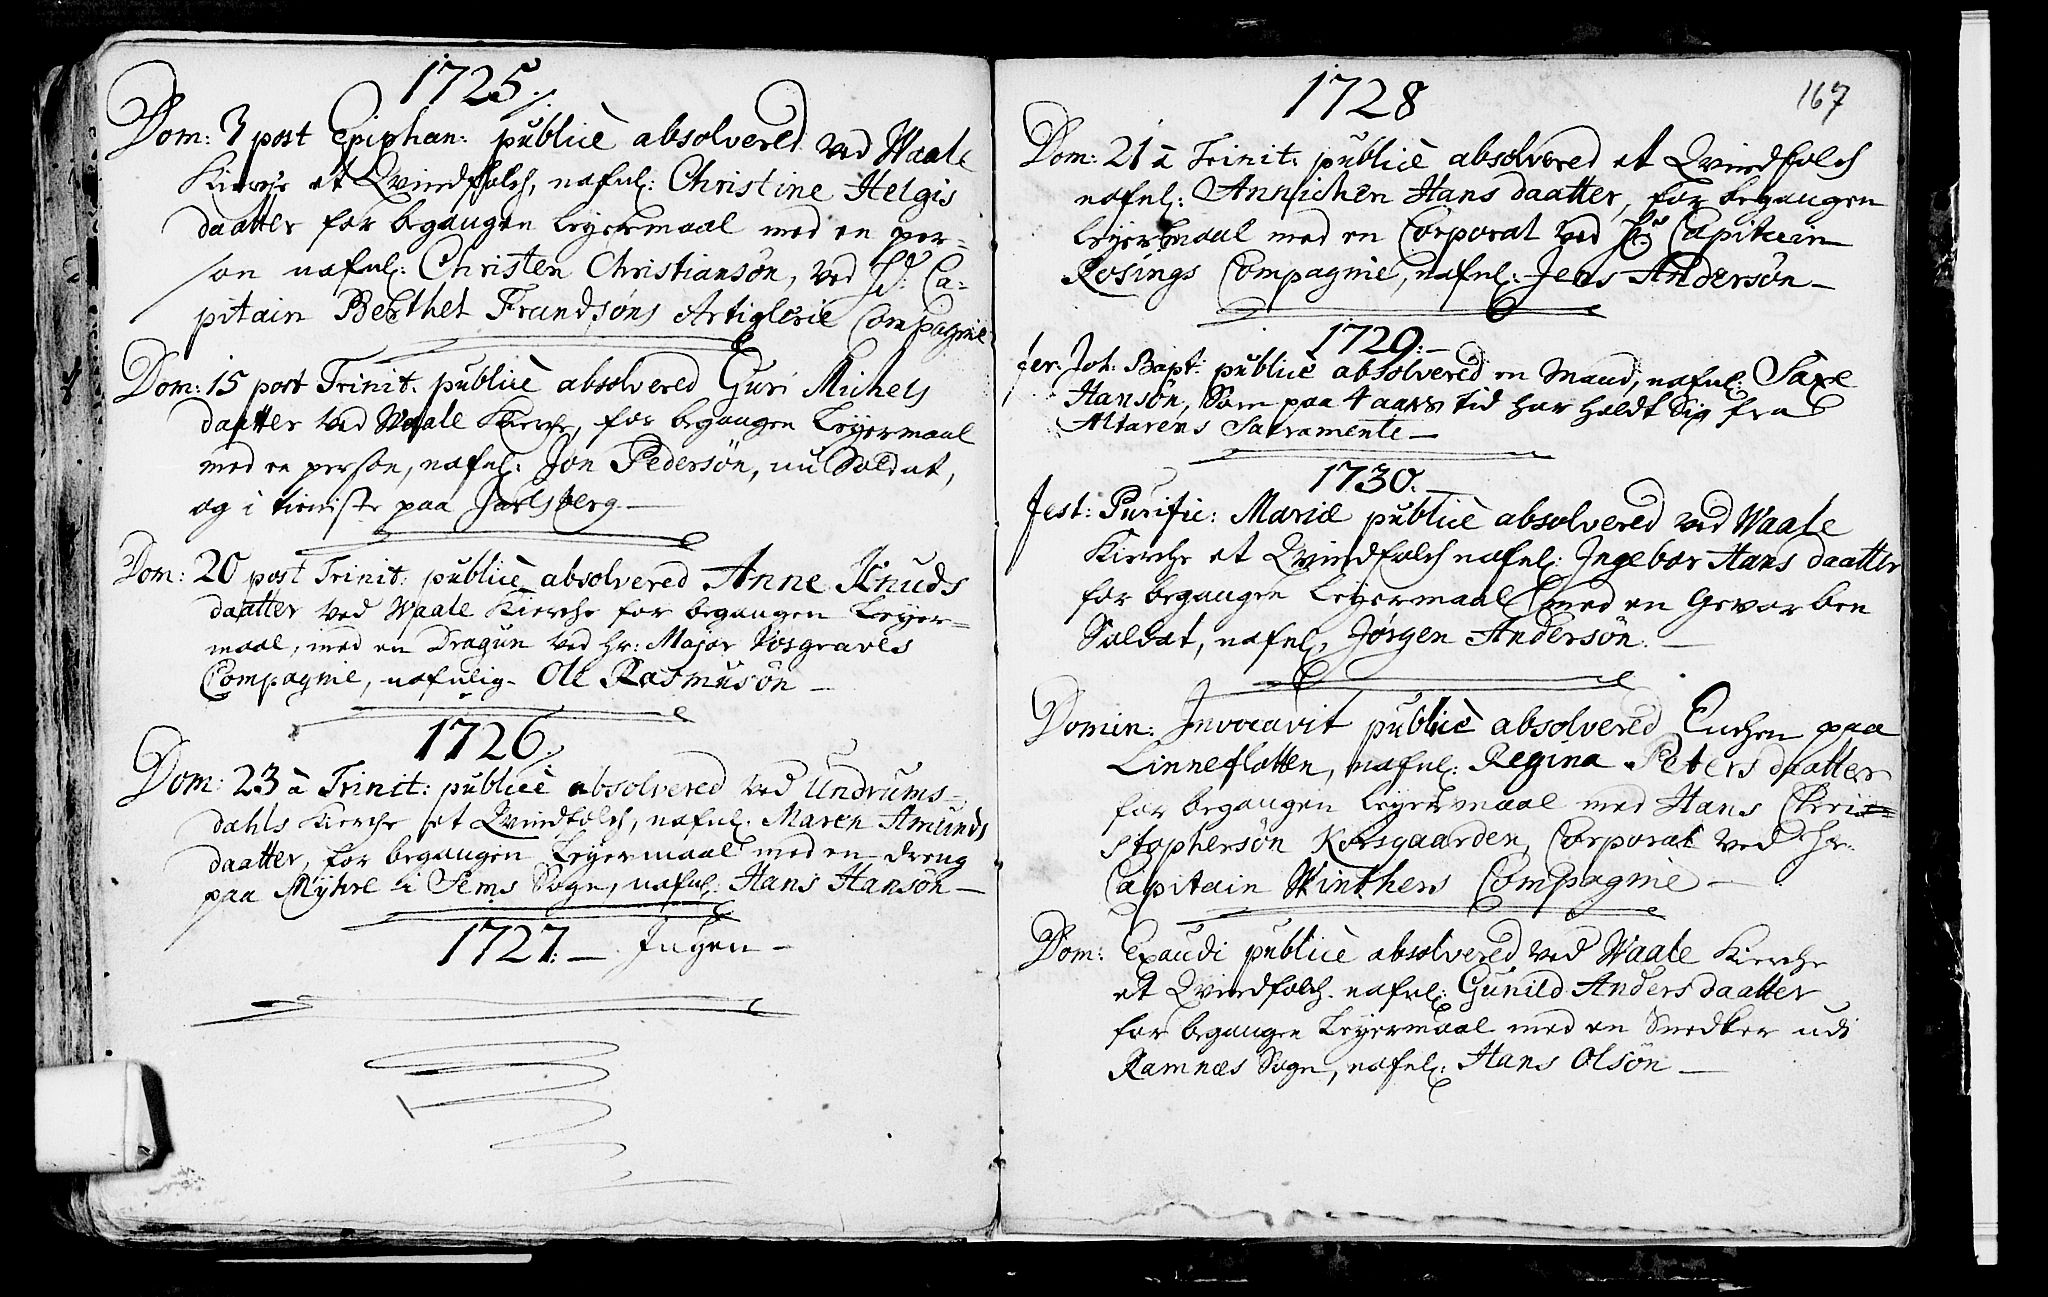 1725.
Dom: 3 post Epiphan: publicè absolvered ved Waale
Kierche et Qvindfolch, nafnl: Christine Helgis
daatter for begangen leyermaal med en per=
son nafnl: Christen Christiansøn, ved Hr: Ca=
pitain Berthel Frandsøns Artiglerie Compagnie
Dom: 15 post Trinit: publicè absolvered Guri Michels
daatter ved Waale Kierche, for begangen Leyermaal
med en person, nafnl: Jon Pedersøn, nu Soldat,
og i tieniste paa Jarlsberg —
Dom: 20 post Trinit: publicè absolvered Anne Knuds
daatter ved Waale Kierche for begangen Leyer=
maal, med en Dragun ved Hr: Major Vosgraves
Compagnie, nafnlig- Ole Rasmusøn —
1726.
Dom: 23 à Trinit: publicè absolvered ved Undrums=
dahls Kierche et Qvindfolch, nafnl: Maren Amunds
daatter, for begangen Leyermaal med en dreng
paa Myhre i Sems Sogn, nafnl: Hans Hansøn —
1727. — Ingen —
167
1728
Dom: 21 à Trinit: publicè absolvered et Qvindfolch
nafnl: Annichen Hans daatter, for begangen
leyermaal med en Corporal ved Hr: Capitain
Rosings Compagnie, nafnl: Jens Andersøn —
1729. —
fer: Joh: Bapt: publicè absolvered en Mand, nafnl: Saxe
Hansøn, Som paa 4 aars tid har holdt Sig fra
Altarens Sacramente —
1730. —
fest: Purific: Mariæ publicè absolvered ved Waale
Kierche et Qvindfolch nafnl: Ingebor Hans daatter
for begangen Leyermaal med en Gevorben
Soldat, nafnl, Jørgen Andersøn. —
Domin: Invocavit publicè absolvered Enchen paa
Linneflatten, nafnl: Regina Peters daatter
for begangen leyermaal med Hans Chri=
stophersøn Korsgaarden, Corporal ved Hr:
Capitain Winthers Compagnie —
Dom: Exaudi publicè absolvered ved Waale Kierche
et Qvindfolch nafnl: Gunild Anders daatter
for begangen Leyermaal med en Snedker udi
Ramnæs Sogn, nafnl: Hans Olsøn —